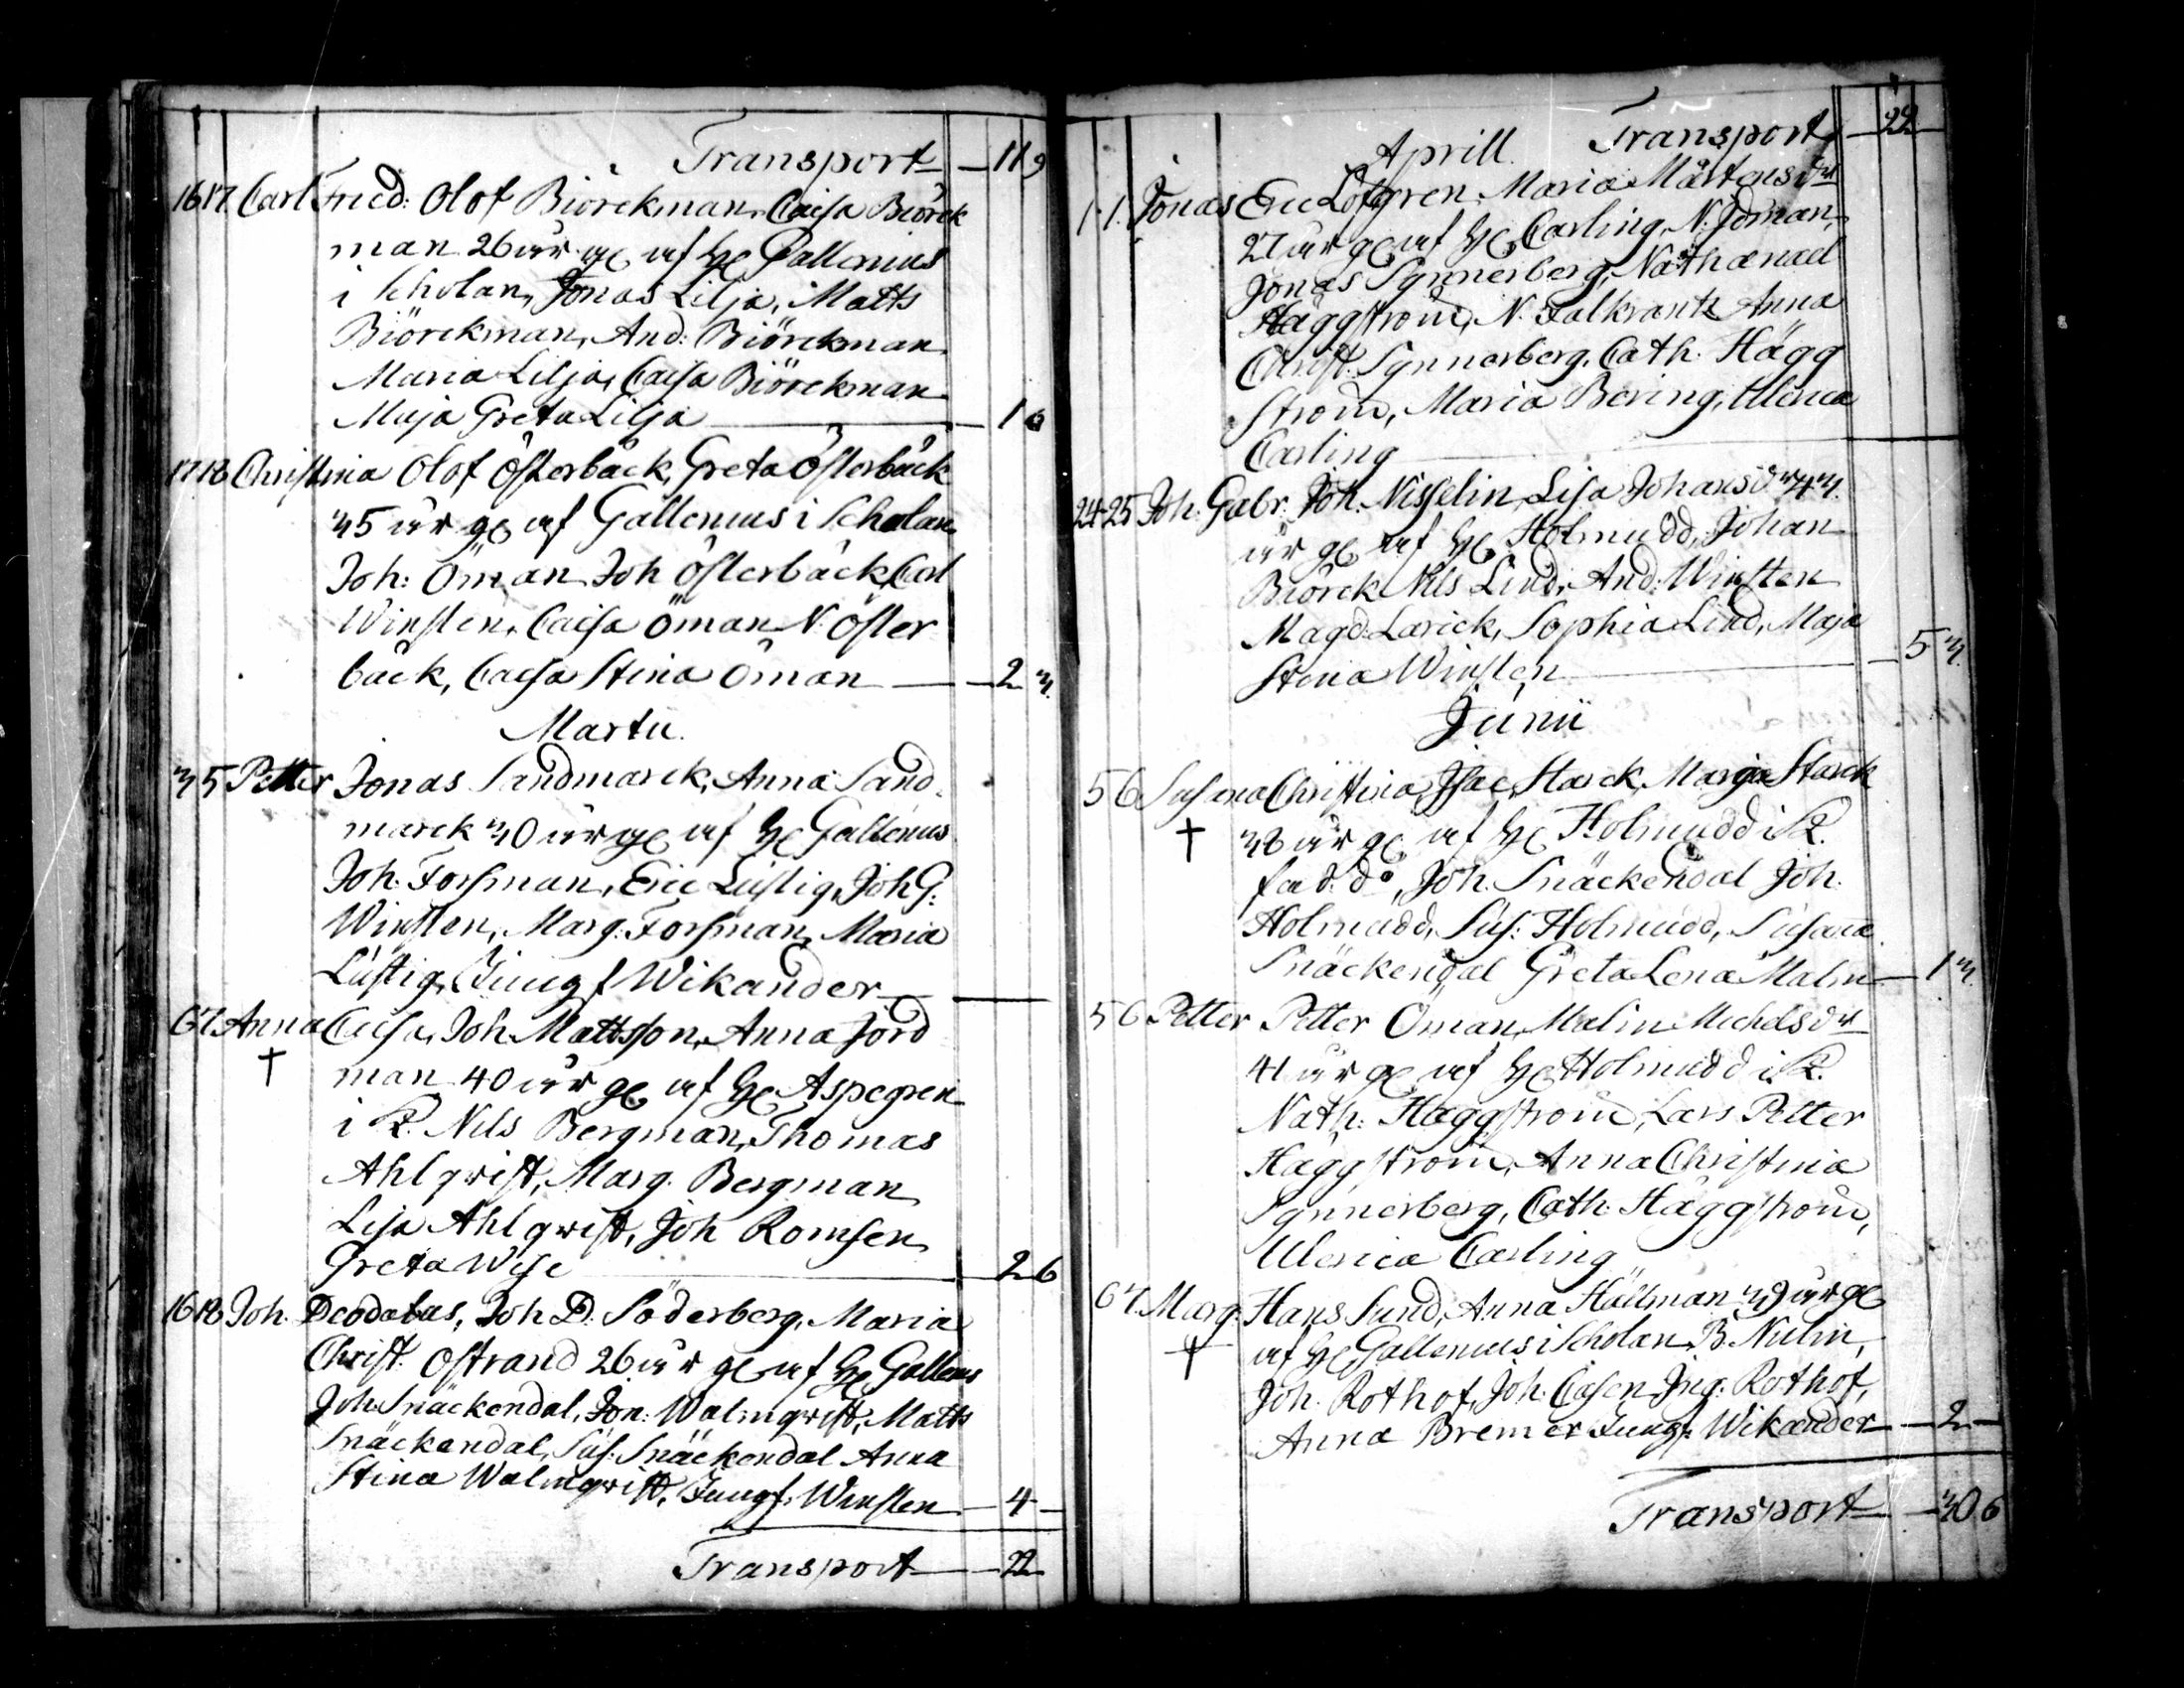 Transport 11 9
16 17. Carl Fried: Olof Biörckman, Caisa Biörck
man 26 år ge af He Gallenius
i Scholan, Jonas Lilja, Matts
Biörckman, And: Biörckman
Maria Lilja, Caisa Biörckman
Maja Greta Lilja 1 6
17 18 Christina Olof Österbäck, Greta Österbäck
35 år ge af Gallenius i Scholan
Joh: Öman Joh Österbäck, Carl
Winsten, Caisa Öman N. Öster
bäck, Caisa Stina Öman 2 3.
Martii.
3 5 Petter Jonas Sandmarck, Anna Sand
marck 30 år ge af He Gallenius
Joh. Forsman, Eric Lustig, Joh G:
Winsten, Marg: Forsman, Maria
Lustig, Jungf Wikander
6 7. Anna Caisa, Joh. Mattsson, Anna Jord
† man 40 år ge af He Aspegren
i K. Nils Bergman, Thomas
Ahlqvist, Marg. Bergman
Lisa Ahlqvist, Joh Romsen
Greta Wise 2 6
16 18 Joh. Deodatus, Joh D. Söderberg, Maria
Christ. Ostrand 26 år ge af He Gallenius
Joh. Snäckendal, Jon: Walmqvist, Matts
Snäckendal, Sus: Snäckendal Anna
Stina Walmqvist, Jungf. Winsten 4
Transport 22
Aprill. Transport 22
1. 1. Jonas Eric Löfgren, Maria Mårtensdr
27 år ge af He Carling, N. Idman,
Jonas Synnerberg, Nathanael
Häggström, N. Falkrantz Anna
Christ. Synnerberg, Cath. Hägg
ström, Maria Bering, Ulrica
Carling
24 25 Joh. Gabr. Joh. Nisselin, Lisa Johansdr 43.
år ge af He Holmudd, Johan
Biörck Nils Lind, And: Winsten
Magd: Larick, Sophia Lind, Maja
Stina Winsten 5 3.
Junii
5 6 Susana Christina, Isac Starck, Maria Starck
† 38 år ge af He Holmudd i K.
fad. do, Joh. Snäckendal Joh.
Holmudd, Sus: Holmudd, Susana
Snäckendal Greta Lena Malm 1 3.
5 6 Petter Petter Öman, Malin Michelsdr
41 år ge af He Holmudd i K.
Nath: Häggström, Lars Petter
Häggström, Anna Christina
Synnerberg, Cath. Häggström,
Ulrica Carling
6 7. Marg: Hans Sund, Anna Hällman 39 år ge
† af He Gallenius i Scholan, B. Nulin,
Joh. Rothof, Joh. Casen, Ing: Rothof,
Anna Bremer Jungf: Wikander 2
Transport 30 6